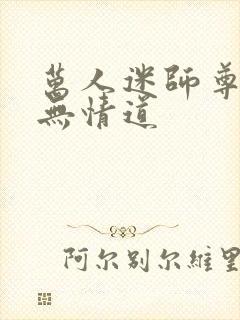 萬人迷師尊
無情道
阿尔别尔維里